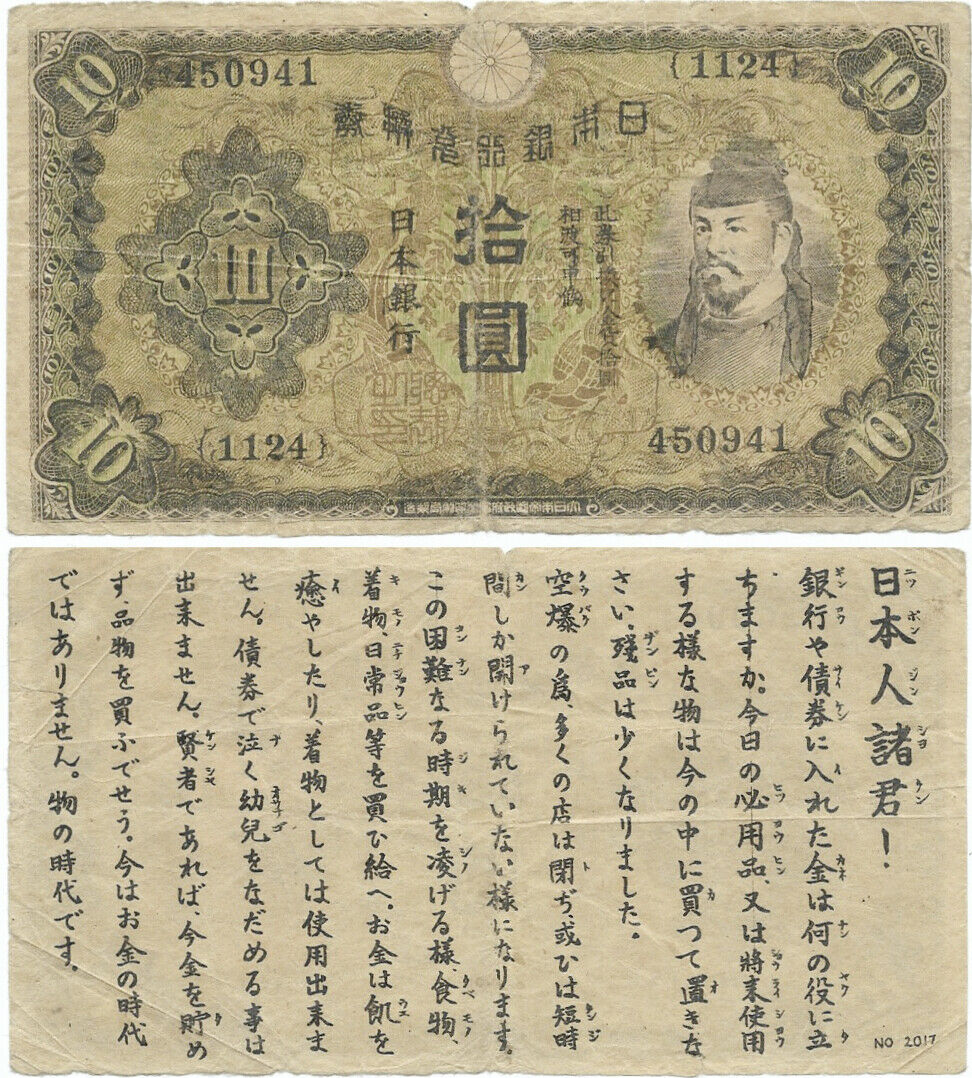 10
450941
{1124}
10
日本銀行兌換券
拾圓
日本銀行
10
{1124}
450941
10
日本人諸君!
銀行や債券に入れた金は何の役に立
ちますか。今日の必用品、又は將来使用
する様な物は今の中に買つて置きな
さい。残品は少くなりました。
空爆の爲、多くの店は閉ぢ、或ひは短時
間しか開けられていない様になります。
この困難なる時期を凌げる様、食物、
着物、日常品等を買ひ給へ。お金は飢を
癒やしたり、着物としては使用出来ま
せん。債券で泣く幼兒をなだめる事は
出来ません。賢者であれば、今金を貯め
ず、品物を買ふでせう。今はお金の時代
ではありません。物の時代です。
NO 2017